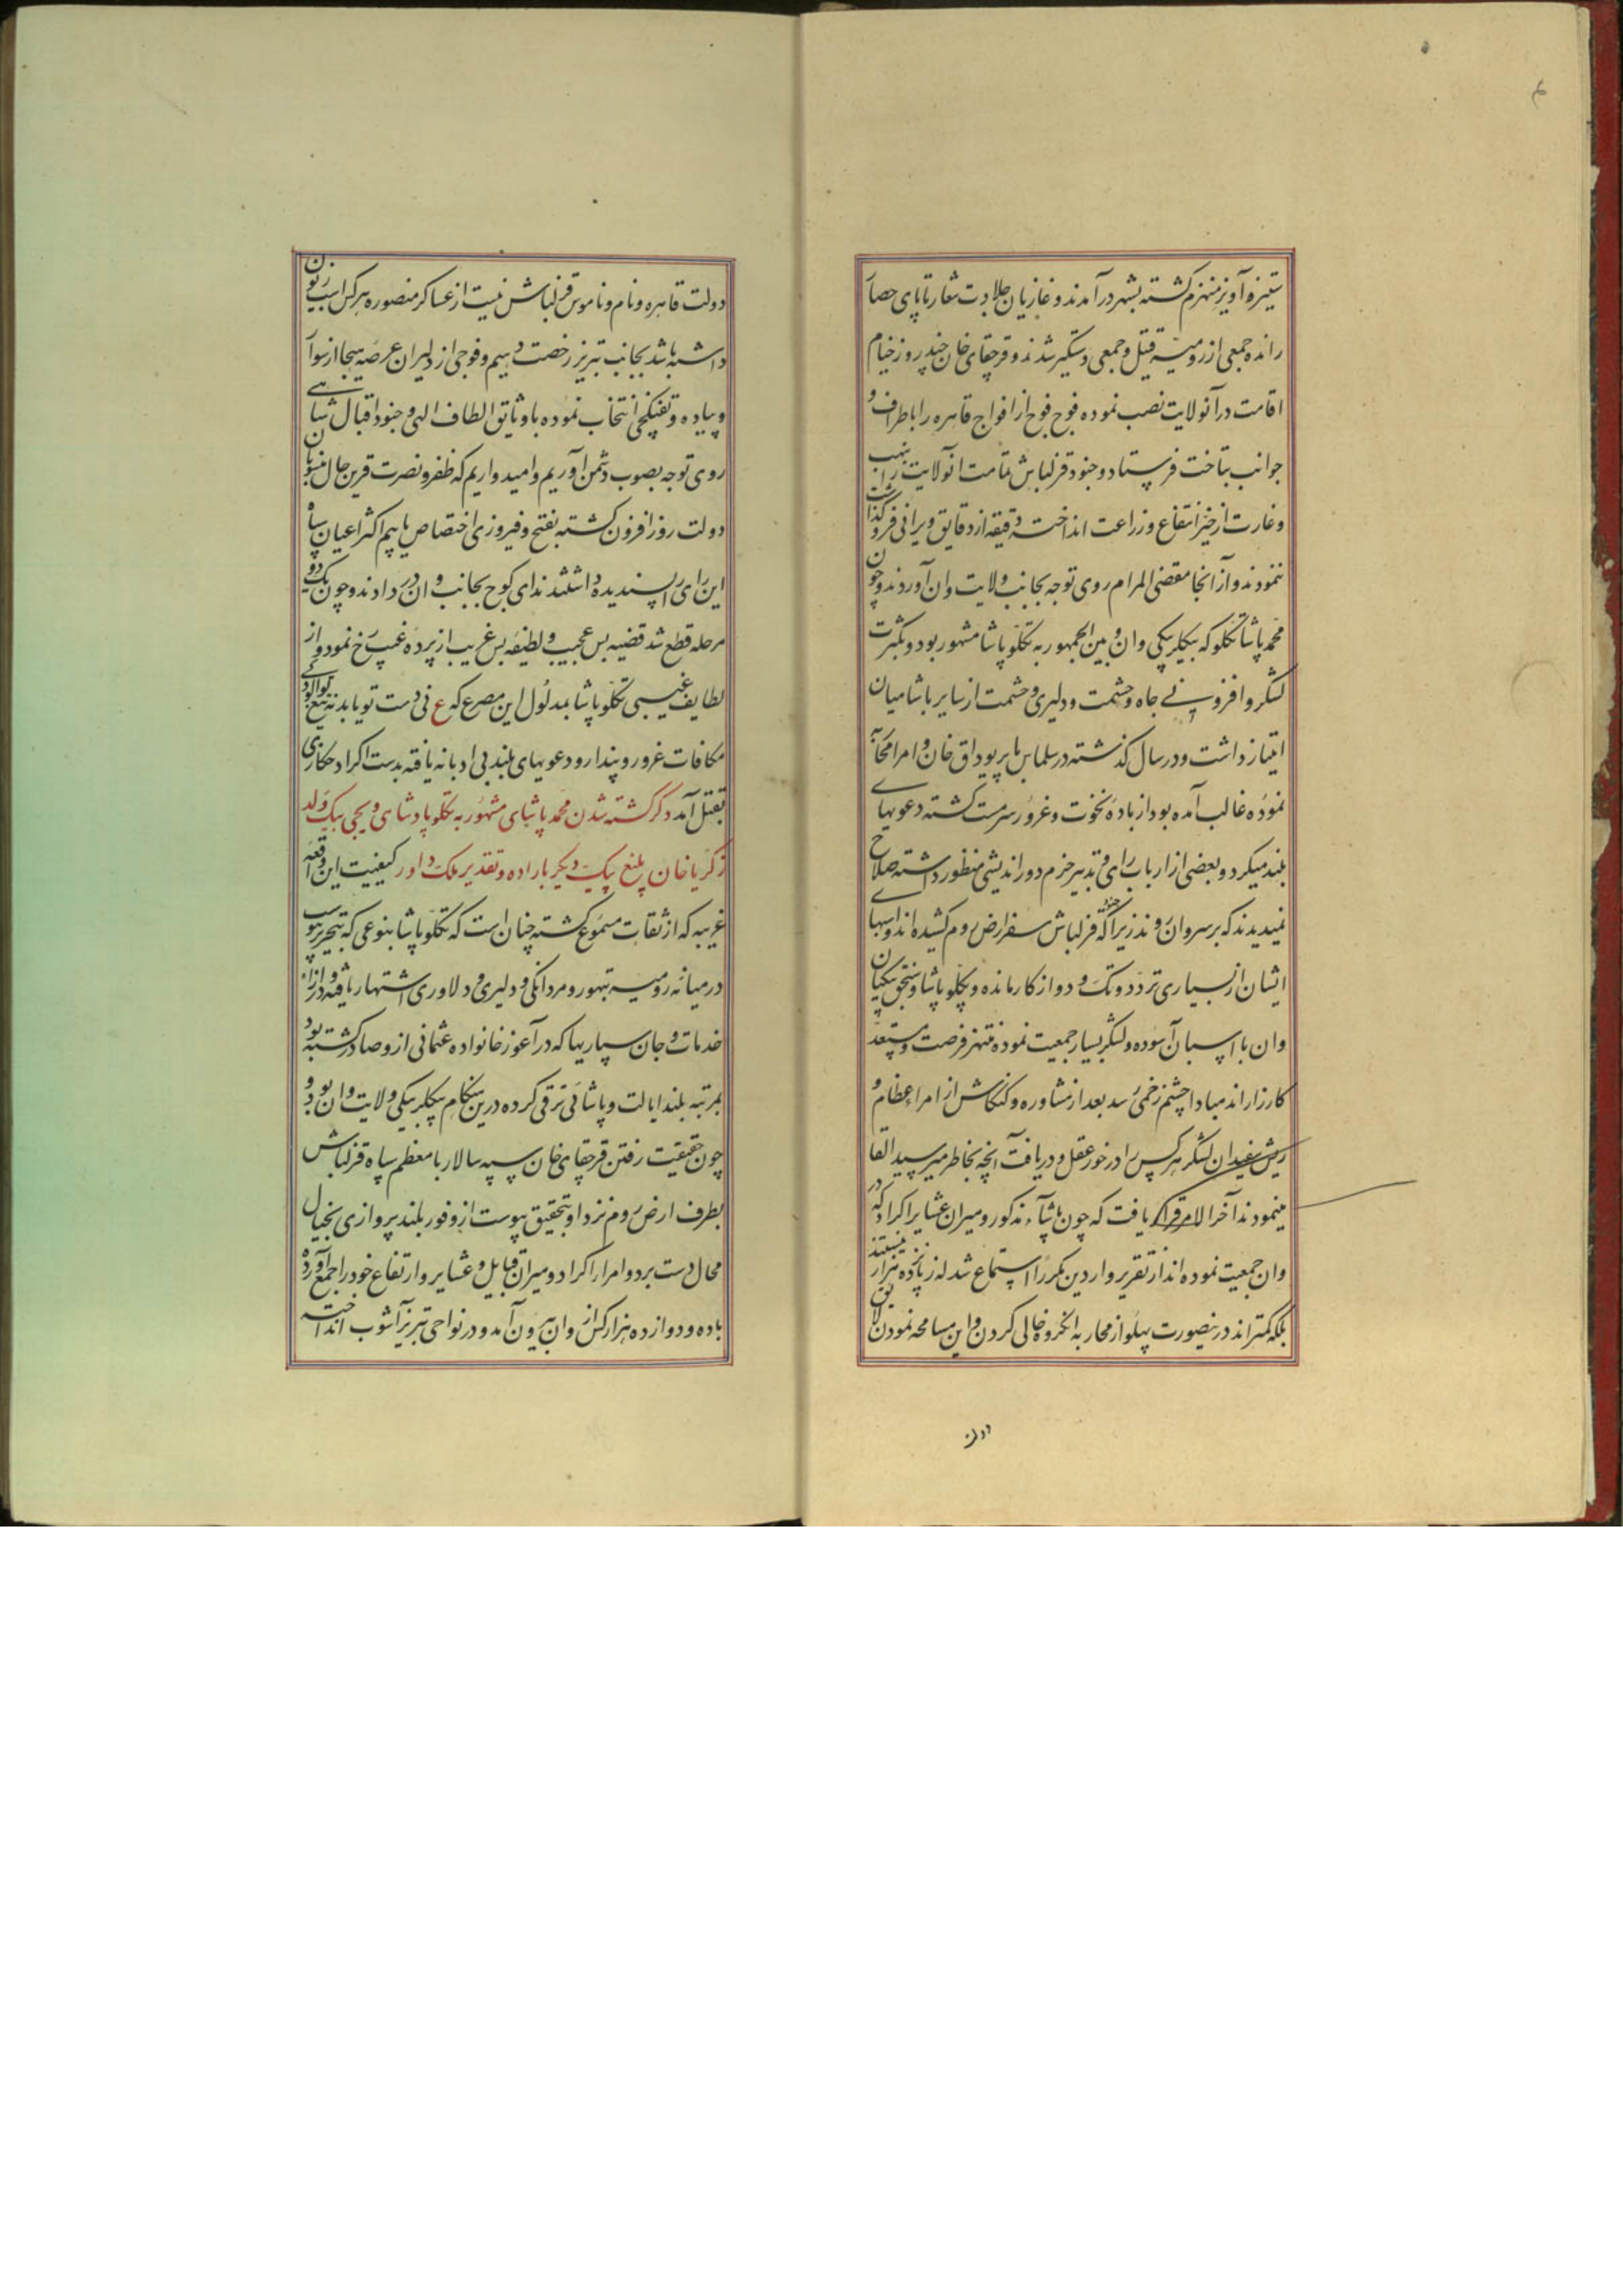 ستیز و آویز منهزم گشته بشهر درآمدند و غازیان جلادت شعار تا پای حصار
رانده جمعی از رومیه قتیل و جمعی دستگیر شدند و قرچقای خان چند روز خیام
اقامت در آنولایت نصب نموده فوج فوج از افواج قاهره را باطراف و
جوانب بتاخت فرستاد و جنود قزلباش تمامت آنولایت را بنهب
و غارت از حیز انتفاع و زراعت انداخته دقیقه از دقایق ویرانی فروگذاشت
ننمودند و از آنجا مقضی المرام روی توجه بجانب ولایت وان آوردند و چون
محمد پاشا تکلو که بیکلربیکی وان و بین الجمهور به تکلو پاشا مشهور بود و بکثرت
لشکر و افزونی جاه و حشمت و دلیری و حشمت از سایر پاشامیان
امتیاز داشت و در سال گذشته در سلماس با پیربوداق خان و امرا محاربه
نموده غالب آمده بود از باده نخوت و غرور سرمست گشته دعویهای
بلند میکرد و بعضی از ارباب رای و تدبیر حزم دوراندیشی منظور داشته صلاح
نمیدیدند که بر سر وان روند زیرا که جنود قزلباش سفر ارض روم کشیده اند و اسبهای
ایشان از بسیاری تردد و تک و دو از کار مانده و تکلو پاشا و سنجق بیکیان
وان با اسپان آسوده و لشکر بسیار جمعیت نموده منتهز فرصت و مستعد
کارزار اند مبادا چشم زخمی رسد بعد از مشاوره و کنکاش از امراء عظام و
ریش سفیدان لشکر هر کس را در خور عقل و دریافت آنچه بخاطر میرسید القا
مینمودند آخر الامر قرار یافت که چون پاشاء مذکور و میران عشایر اکراد که در
وان جمعیت نموده اند از تقریر واردین مکررا استماع شد که از پانزده هزار بیش نیستند
بلکه کمتراند درینصورت پهلو از محاربه آنگروه خالی کردن و این مسامحه نمودن لایق
دولت
دولت قاهره و نام و ناموس قزلباش نیست از عساکر منصوره هر کس اسب زبون
داشته باشد بجانب تبریز رخصت دهیم و فوجی از دلیران عرصه هیجا از سوار
و پیاده و تفنگچی انتخاب نموده باوثایق الطاف الهی و جنود اقبال شاهی
روی توجه بصوب دشمن آوریم و امیدواریم که ظفر و نصرت قرین حال منسوبان
دولت روزافزون گشته بفتح و فیروزی اختصاص یابیم اکثر اعیان سپاه
این رای را پسندیده داشتند ندای کوچ بجانب وان در دادند و چون یک دو
مرحله قطع شد قضیه بس عجیب و لطیفه بس غریب از پرده غیب رخ نمود و از
لطایف غیبی تکلو پاشا بمدلول این مصرع که ع نی دست تو یابد نه تیغ
مکافات غرور و پندار و دعویهای بلند بی ادبانه یافته بدست اکراد حکاری
بقتل آمد ذکر کشته شدن محمد پاشای مشهور به تکلو پادشای و یحیی بیک ولد
زکریا خان بتیغ یکدیگر باراده و تقدیر ملک داور کیفیت این واقعه
غریبه که از ثقات مسموع گشته چنان است که تکلو پاشا بنوعی که بتحریر پیوست
در میانه رومیه بتهور و مردانگی و دلیری و دلاوری اشتهار یافته و در ازاء
خدمات و جان سپاریها که در آغوز خانواده عثمانی ازو صادر گشته بود
بمرتبه بلند ایالت و پاشائی ترقی کرده درین هنگام بیکلربیکی ولایت وان بود و
چون حقیقت رفتن قرچقای خان سپه سالار با معظم سپاه قزلباش
بطرف ارض روم نزد او بتحقیق پیوست از وفور بلند پروازی بخیال
محال دست برد و امرا اکراد و میران قبایل و عشایر و ارتفاع خود را جمع آورده
با ده و دوازده هزار کس از وان بیرون آمد و در نواحی تبریز آشوب انداخته